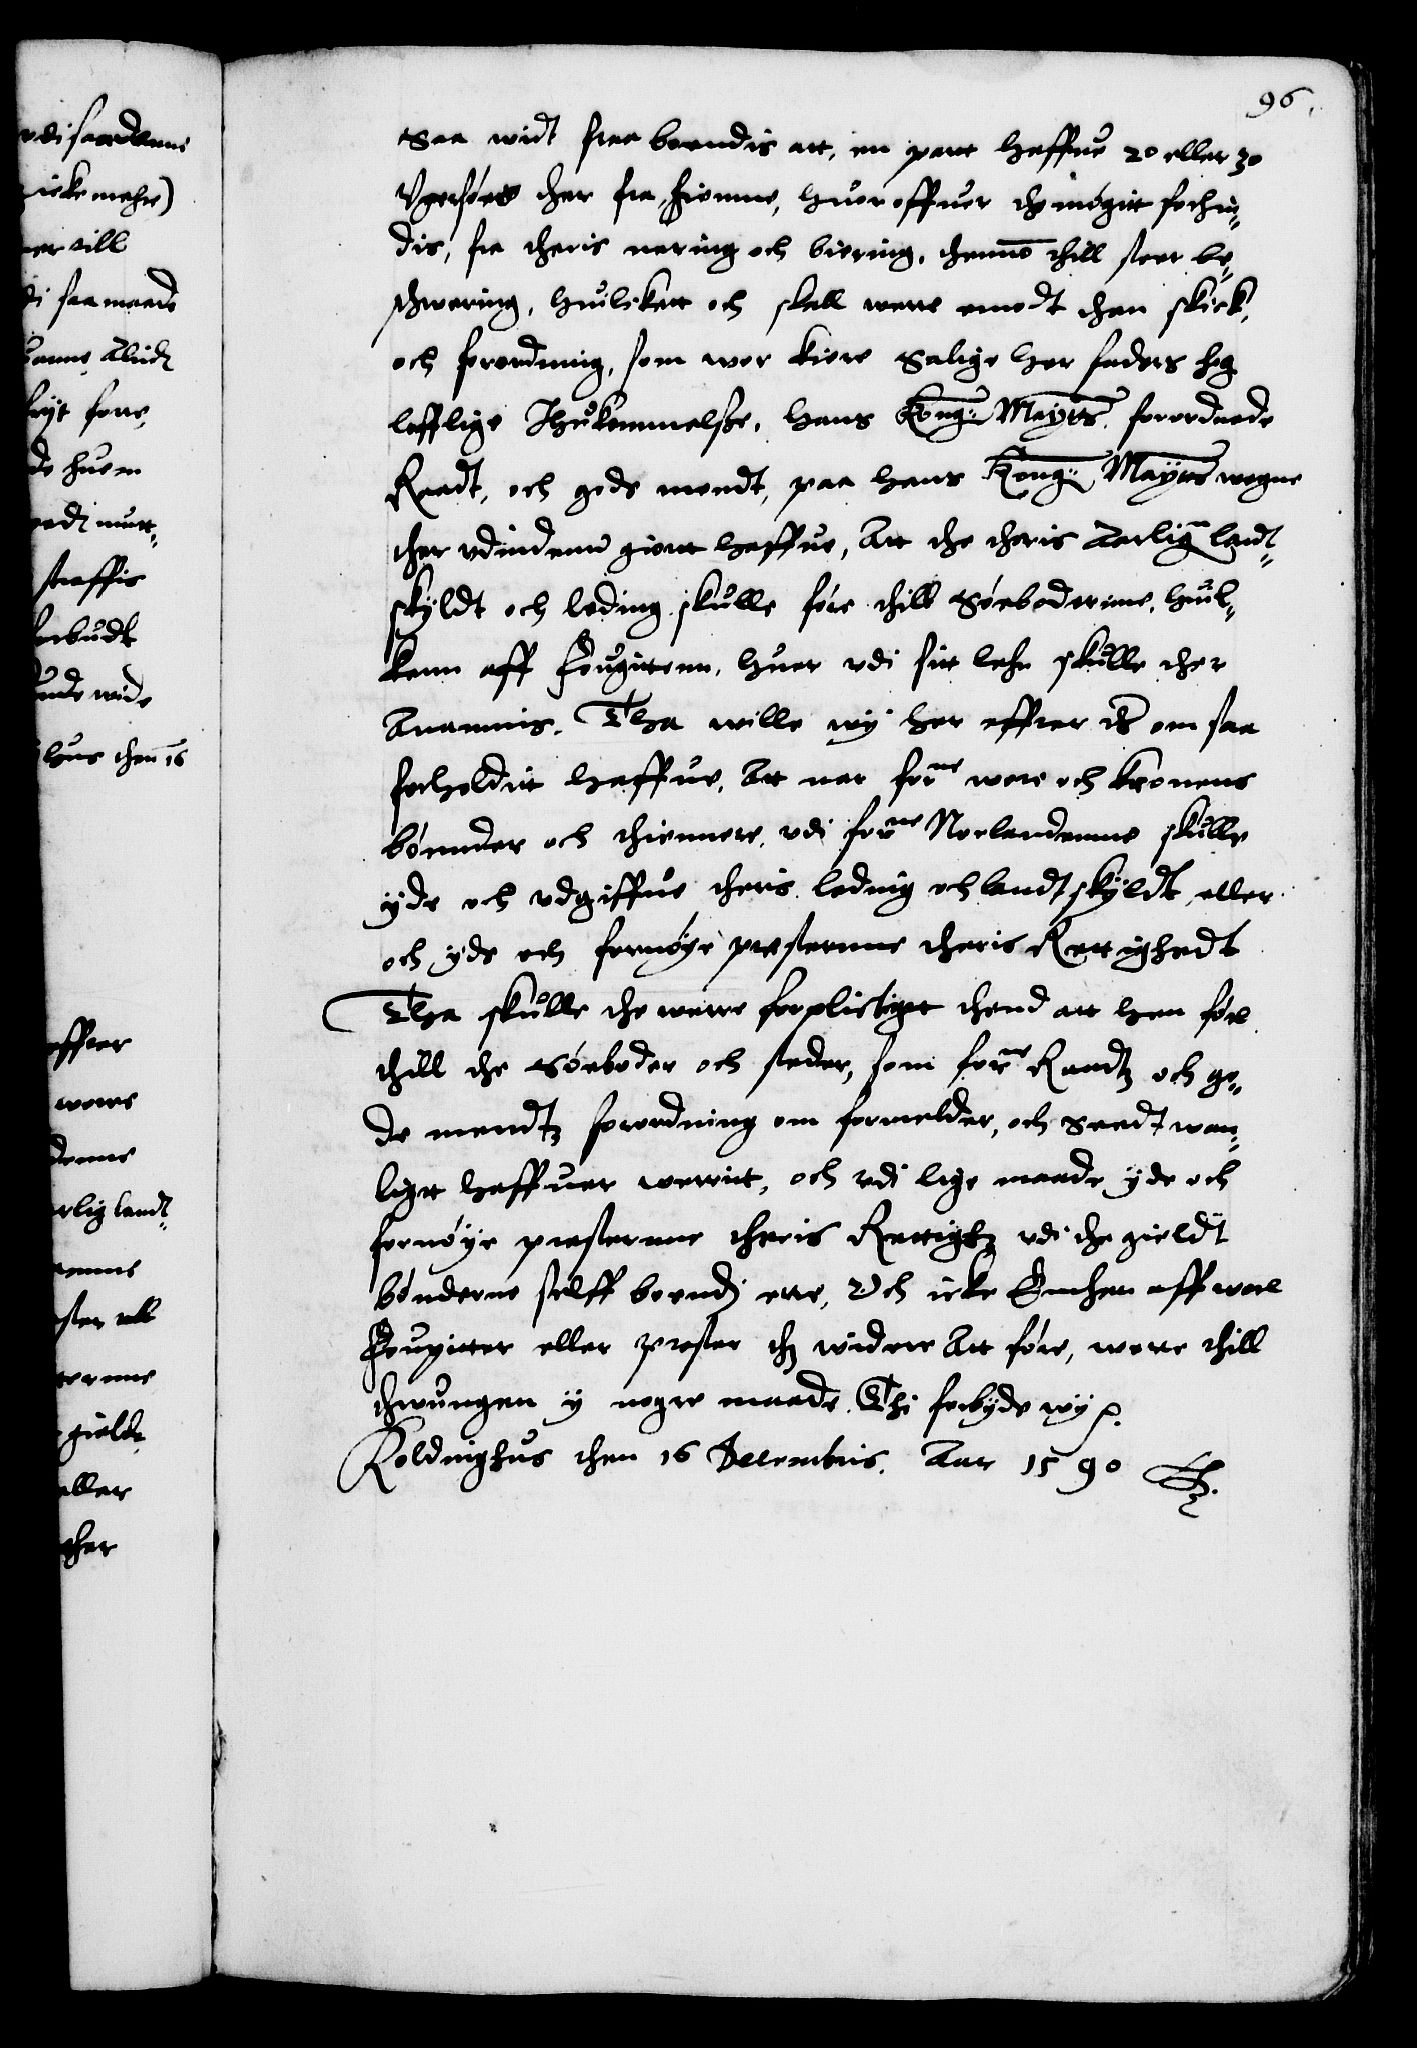 96.
Saa widt fraa boendis att, en partt haffue 20 eller 30
Vgersöes ther fra hiemme, huor offuer the mögitt forhin¬
dis, fra theris nering och biering, thennom thill stoer be¬
sswering, huilckett och skall were emodt then skick,
och forordning, som wor kiere Salige her faders høg
lofflige Ihukommelsse, hans Kong: Mayts forordnede
Raadt, och gode mendt, paa hans Kong: Mayts wegne
ther vdindenn giortt haffue, Att the theris Aarlig landt¬
skyldt och leding skulle føre thill Søeboderinne, huil¬
kenn aff Fougitterne, huer vdi sitt lehn skulle ther
Anammis. Tha wille wy her effter det om saa
forholdit haffue, Att naar forne wore och Kronens
bønnder och thiennere, vdi forne Norlandenne skulle
yde och vdgiffue theris leding och landtskyldt, eller
och yde och fornøye presterne theris Rettighedt
Tha skulle the werre forplictigt thend att hen føre
thill the Søeboder och steder, som forne Raadtz och go¬
de mendtz forordning om formelder, och Saadt wan¬
ligtt haffuer werritt, och vdi lige maade yde och
fornøye presterne theris Rettighz vdi the gieldt
bønderne selff boendis erre, Och icke Enthen aff wore
Fougitter eller prester thz widere Att føre, werre thill
thwungen y nogre maade. Thi forbyde wy p.
Koldinghus then 16 Decembris. Aar 1590
vdi saadanne
icke mehre)
er till
di saa maade
Alindt
ryt forre,
de huem
straffis
forbudt
unde wide
hus thenn 16
effter
worre
denne
rlig landt¬
emme
ster
terne
gieldt
eller
ther